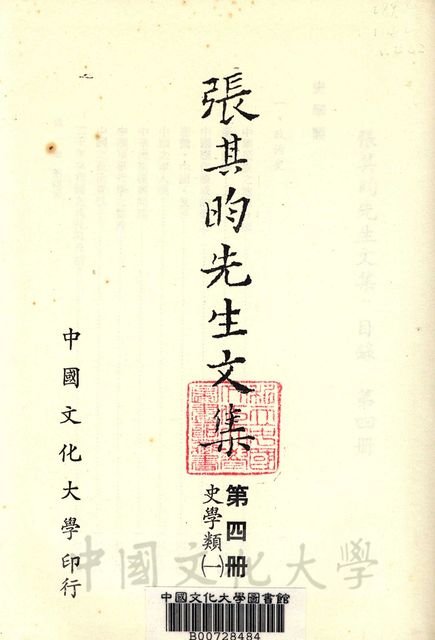 張其昀先生文集
第四冊
史學類㈠
中國文化大學印行
中國文化大學
中國文化大學圖書館
B00728484